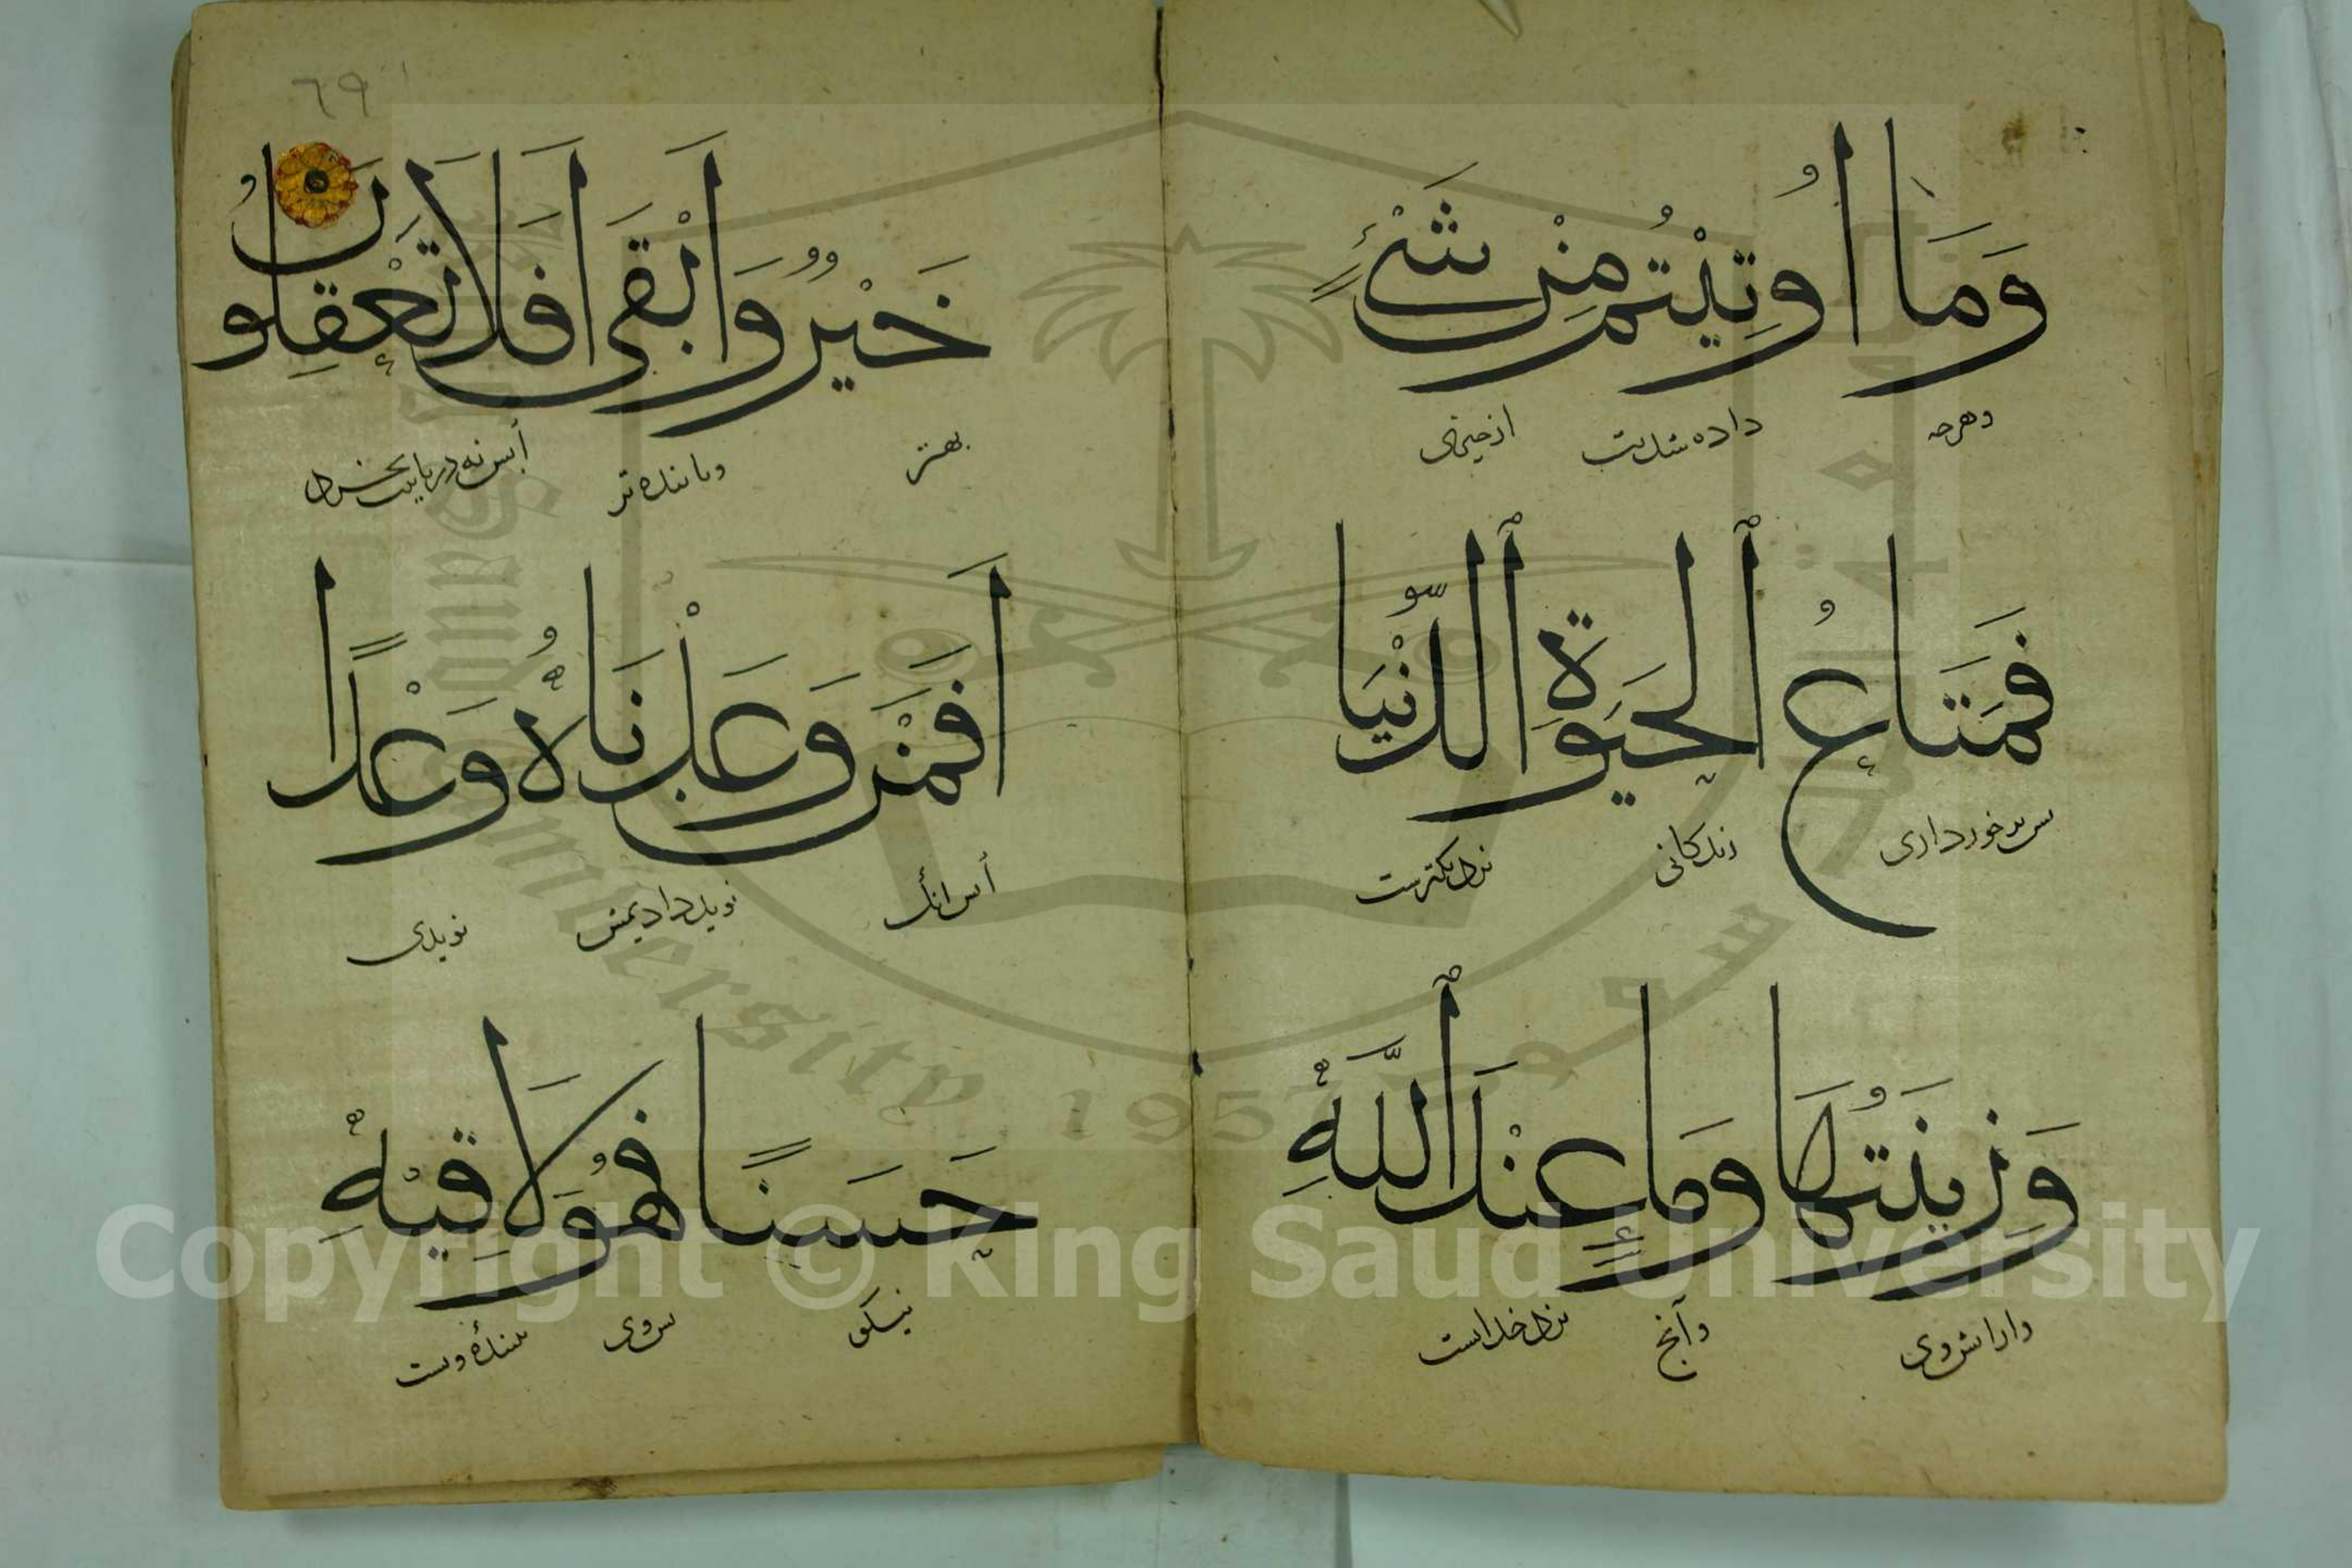 وَمَا اُوتِيْتُمْ مِنْ شَیْءٍ
وهرچه داده شدیت از چیزی
فَمَتَاعُ ٱلحَيَوةِ ٱلدُّنْيَا
برخورداری زندکانی نزدیکترست
وَزِينَتُهَا وَمَا عِنْدَ ٱللّٰهِ
وارایش وی وآنچ نزد خداست
٦٩
خَيْرٌ وَاَبْقَى اَفَلَا تَعْقِلُونَ
بهتر وپاینده تر
اَفَمَنْ وَعَدْنَاهُ وَعْدًا
أپس انک نوید دادیمش نویدی
حَسَنًا فَهُوَ لَاقِيْهِ
نیکو پس وی بیننده وست
Copyright © King Saud University
1957